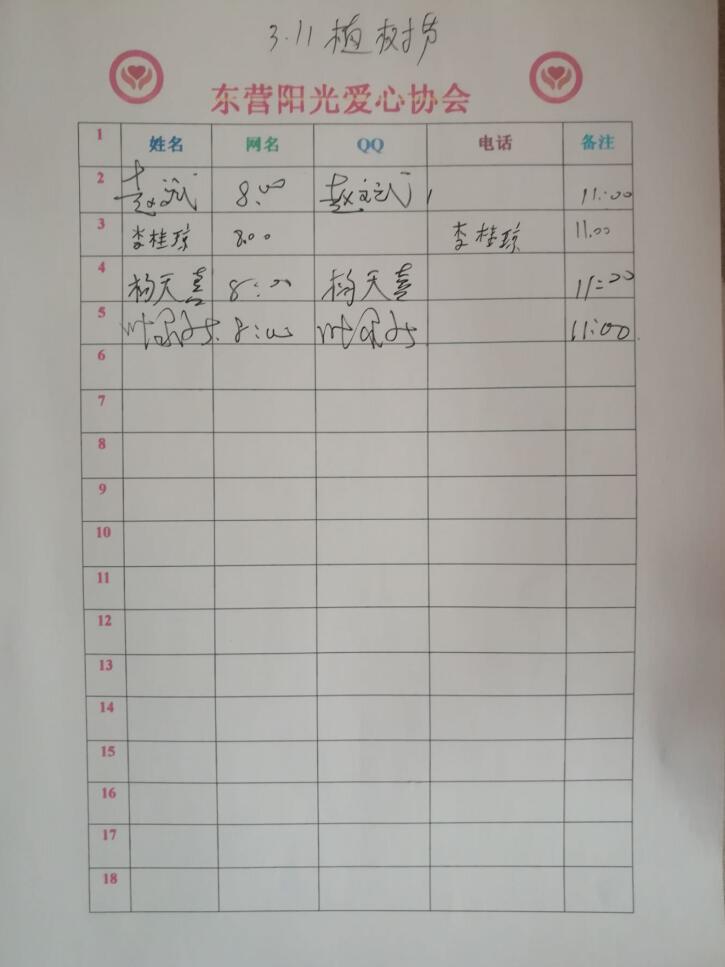 3.11植树节
东营阳光爱心协会
1 姓名 网名 QQ 电话 备注
2 赵文武 8:00 赵文武 11:00
3 李桂琼 8:00 李桂琼 11:00
4 杨天喜 8:00 杨天喜 11:00
5 8:00 11:00
6
7
8
9
10
11
12
13
14
15
16
17
18